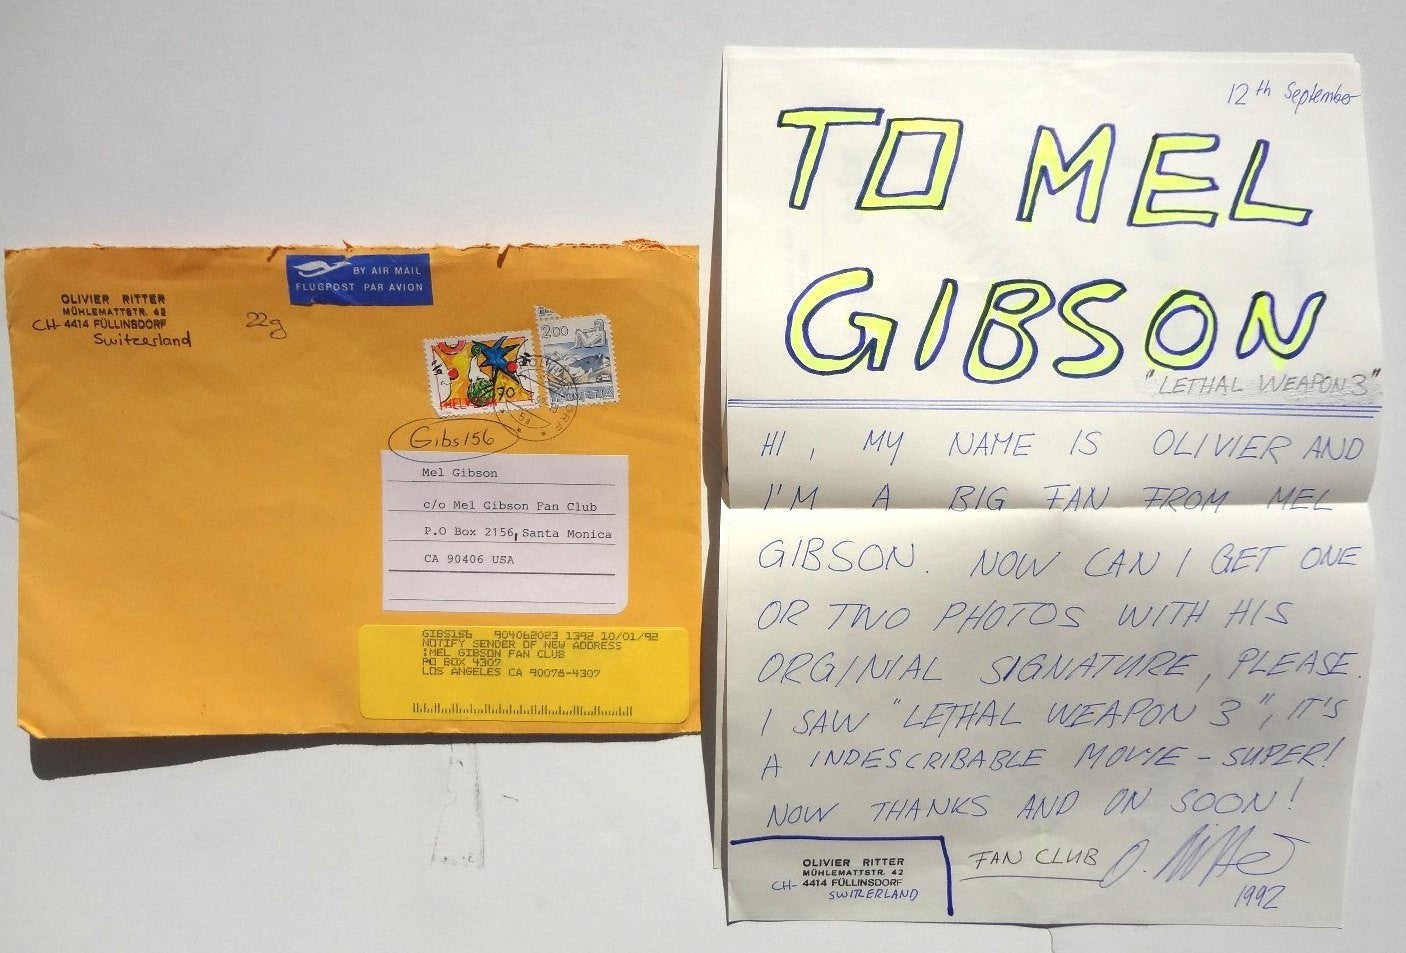 OLIVIER RITTER
MÜHLEMATTSTR. 42
CH- 4414 FÜLLINSDORF
Switzerland
22g
BY AIR MAIL
FLUGPOST PAR AVION
70
HELVETIA
200
HELVETIA
Gibs156
Mel Gibson
c/o Mel Gibson Fan Club
P.O Box 2156, Santa Monica
CA 90406 USA
GIBS156 904062023 1392 10/01/92
NOTIFY SENDER OF NEW ADDRESS
:MEL GIBSON FAN CLUB
PO BOX 4307
LOS ANGELES CA 90078-4307
12th September
TO MEL
GIBSON
"LETHAL WEAPON 3"
HI, MY NAME IS OLIVIER AND
I'M A BIG FAN FROM MEL
GIBSON. NOW CAN I GET ONE
OR TWO PHOTOS WITH HIS
ORGINIAL SIGNATURE, PLEASE.
I SAW "LETHAL WEAPON 3", IT'S
A INDESCRIBABLE MOVIE - SUPER!
NOW THANKS AND ON SOON!
FAN CLUB
1992
OLIVIER RITTER
MÜHLEMATTSTR. 42
CH- 4414 FÜLLINSDORF
SWITZERLAND